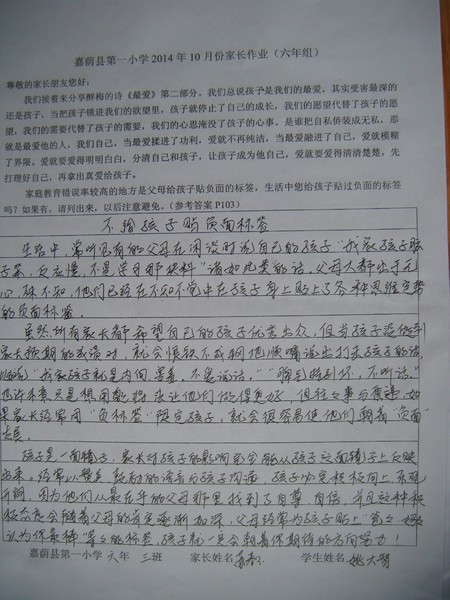 嘉荫县第一小学 2014 年 10 月份家长作业（六年组）
尊敬的家长朋友您好：
我们接着来分享醉梅的诗《最爱》第二部分。我们总说孩子是我们的最爱，其实受害最深的
还是孩子，当把孩子锁进我们的欲望里，孩子就停止了自己的成长，我们的愿望代替了孩子的愿
望，我们的需要代替了孩子的需要，我们的心思淹没了孩子的心事。是谁把自私侨装成无私，那
就是最爱他的人，我们自己，当最爱揉进了功利，爱就不再纯洁，当最爱融进了自己，爱就模糊
了界限。爱就要爱得明明白白，分清自己和孩子，让孩子成为他自己，爱就要爱得清清楚楚，先
打理好自己，再拿出真爱给孩子。
家庭教育错误率较高的地方是父母给孩子贴负面的标签，生活中您给孩子贴过负面的标签
吗？如果有，请列出来，以后注意避免。（参考答案 P103）
不给孩子贴负面标签
生活中，常听见有的父母在闲谈时说自己的孩子“我家孩子胆
子小，反应慢，不是学习那块料”诸如此类的话，父母大都出于无
心，殊不知，他们已经在不知不觉中在孩子身上贴上了各种思维定势
的负面标签。
虽然所有家长都希望自己的孩子优秀出众，但当孩子没达到
家长预期的成绩时，就会恨铁不成钢地顺嘴说出打击孩子的话，
“我家孩子就是内向、害羞，不爱说话。”“脾气特别坏，不听话。”
也许本意只是想用激将法让他们做得更好，但往往事与愿违，如
果家长经常用“负标签”锁定孩子，就会很容易使他们朝着“负面”
去走。
孩子是一面镜子，家长对孩子的影响都会从孩子这面镜子上反映
出来，经常以赞美、鼓励的语言与孩子沟通，孩子也定积极向上、乐观
开朗，因为他们从最在乎的父母那里找到了自尊、自信，并且这种积
极态度会随着父母的肯定逐渐加深，父母经常为孩子贴上
认为你最棒”等等的标签，孩子就一定会朝着你期待的方向努力！
嘉荫县第一小学 六 年 三 班 家长姓名 学生姓名 姚大智